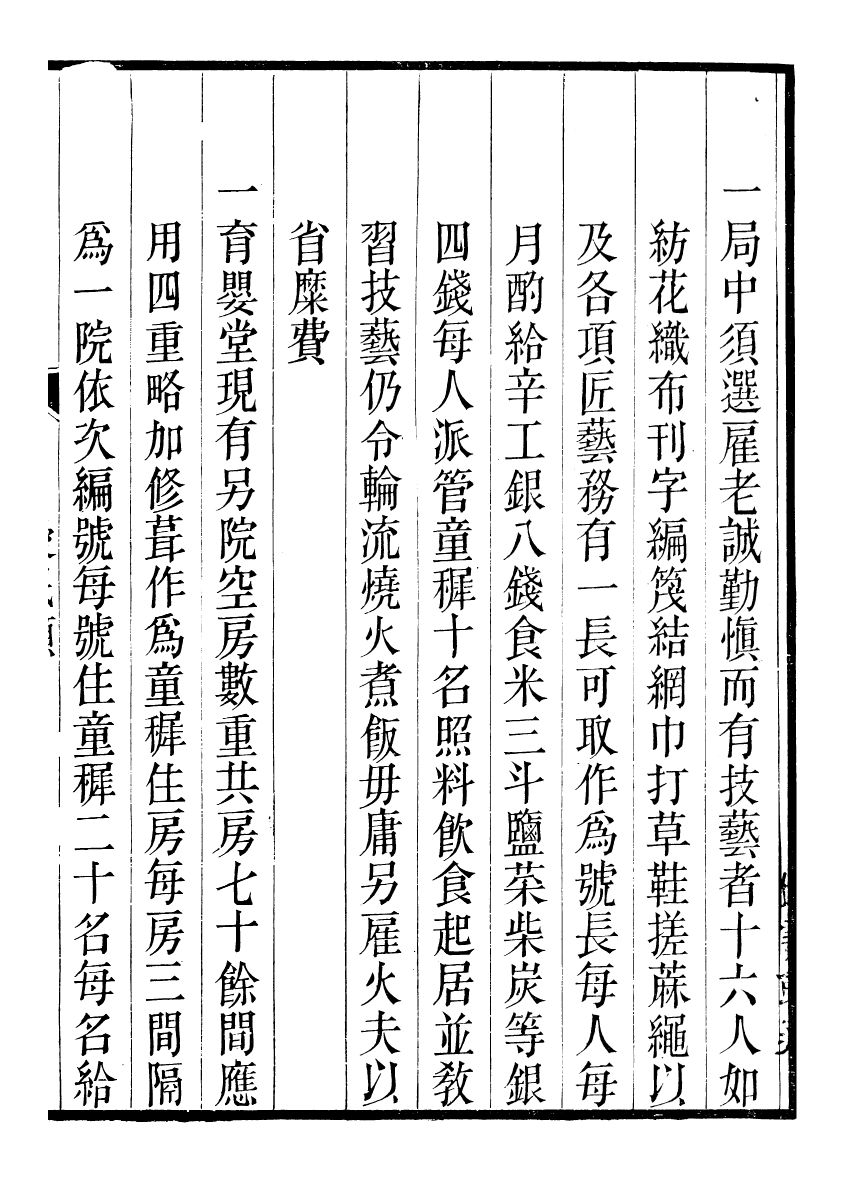 一局中須選雇老誠勤慎而有技藝者十六人如
紡花織布刊字編篾結網巾打草鞋搓蔴繩以
及各項匠藝務有一長可取作爲號長每人每
月酌給辛工銀八錢食米三斗鹽菜柴炭等銀
四錢每人派管童穉十名照料飲食起居並敎
習技藝仍令輪流燒火煮飯毋庸另雇火夫以
省糜費
一育嬰堂現有另院空房數重共房七十餘間應
用四重略加修葺作爲童穉住房每房三間隔
爲一院依次編號每號住童穉二十名每名給